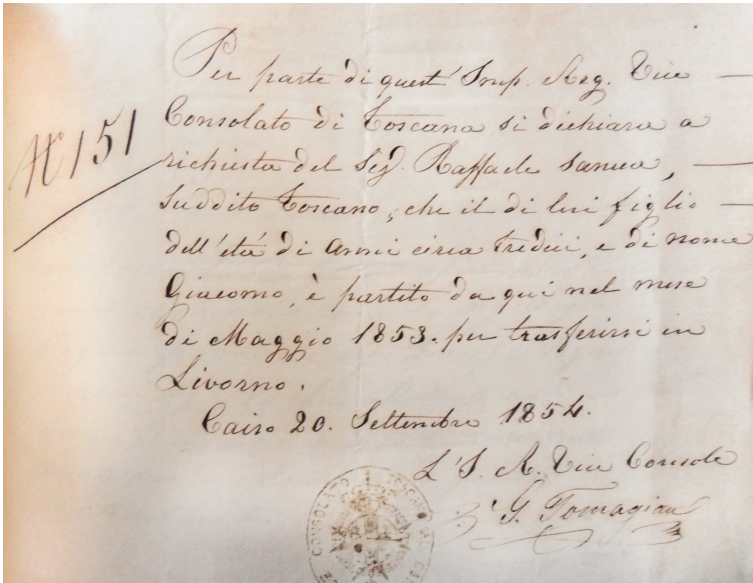 Per parte di quest' Imp. Reg. Vice
Consolato di Toscana si dichiara a
richiesta del Sig. Raffaele Sanua,
suddito Toscano, che il di lui figlio
dell'età di Anni circa tredici, e di nome
Giacomo, è partito da qui nel mese
di Maggio 1853. per trasferirsi in
Livorno.
Cairo 20. Settembre 1854.
L'I. R. Vice Console
G. Tomagian
N 151
CONSOLATO TOSCANO